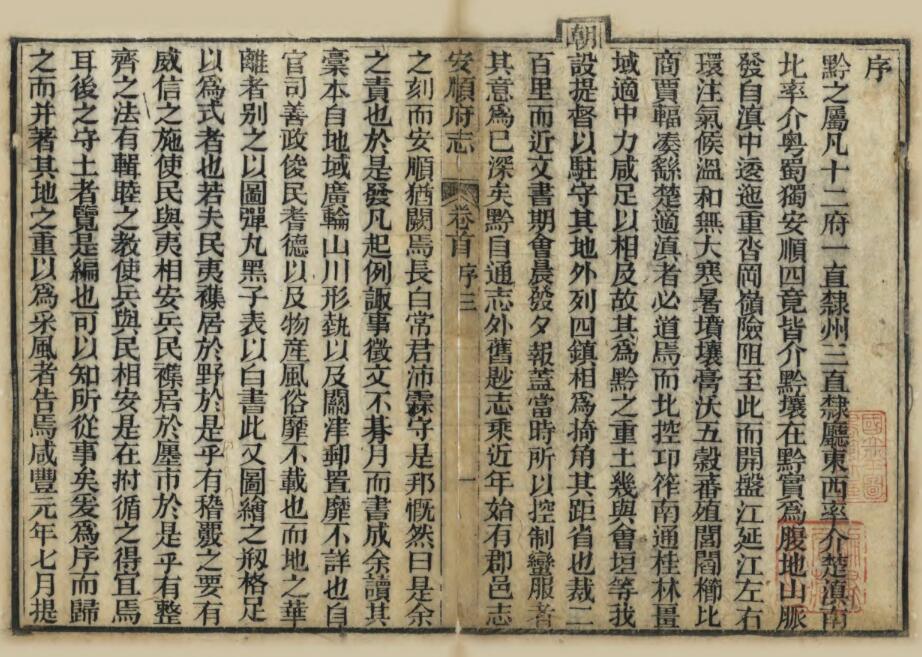 序
黔之屬凡十二府一直隸州三直隸廳東西率介楚滇南
北率介粵蜀獨安順四竟皆介黔壤在黔實爲腹地山脈
發自滇中逶迤重沓岡嶺險阻至此而開盤江延江左右
環注氣候溫和無大寒暑墳壤膏沃五穀蕃殖閭閻櫛比
商賈輻湊繇楚適滇者必道焉而北控卭筰南通桂林畺
域適中力咸足以相及故其爲黔之重土幾與會垣等我
朝
設提督以駐守其地外列四鎮相爲掎角其距省也裁二
百里而近文書期會晨發夕報蓋當時所以控制蠻服者
其意爲已深矣黔自通志外舊尟志乘近年始有郡邑志
安順府志
卷首
序三
一
之刻而安順猶闕焉長白常君沛霖守是邦慨然曰是余
之責也於是發凡起例諏事徵文不朞月而書成余讀其
稾本自地域廣輪山川形埶以及關津郵置靡不詳也自
官司善政俊民耆德以及物産風俗靡不載也而地之華
離者别之以圖彈丸黑子表以白書此又圖繪之剏格足
以爲式者也若夫民夷襍居於野於是乎有稽覈之要有
威信之施使民與夷相安兵民襍居於廛市於是乎有整
齊之法有輯睦之教使兵與民相安是在拊循之得宜焉
耳後之守土者覽是編也可以知所從事矣爰爲序而歸
之而并著其地之重以爲采風者告焉咸豐元年七月提